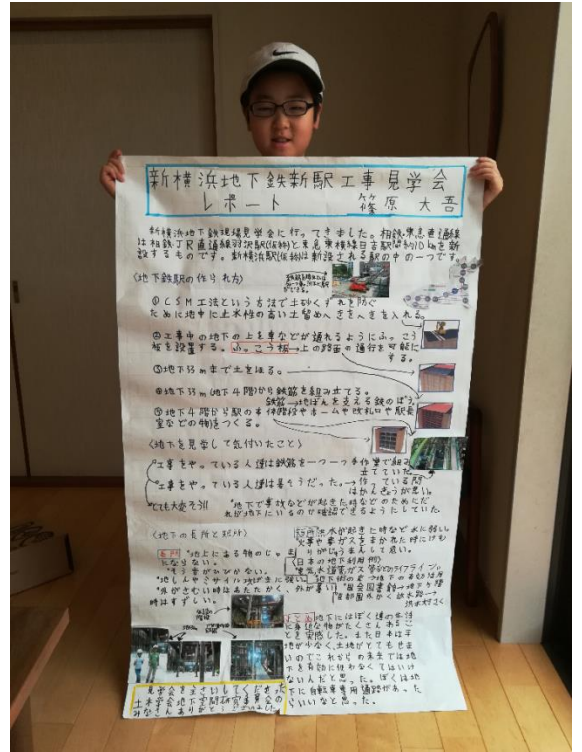 新横浜地下鉄新駅工事見学会
レポート　篠原 大吾
新横浜地下鉄現場見学会に行ってきました。相鉄・東急直通線
は相鉄JR直通線羽沢駅(仮称)と東急東横線日吉駅間約10kmを新
設するものです。新横浜駅(仮称)は新設される駅の中の一つです。
〈地下鉄駅の作られ方〉
①CSM工法という方法で土砂くずれを防ぐ
ために地中に止水性の高い土留めへきをへきを入れる。
②工事中の地下の上を車などが通れるようにふっこう
板を設置する。ふっこう板→上の路面の通行を可能に
する。
③地下33mまで土をほる。
④地下33m(地下4階)から鉄筋を組み立てる。
鉄筋→地ばんを支える鉄のぼう
⑤地下4階から駅の本体階段やホームや改札口や駅長
室などの物をつくる。
〈地下を見学して気付いたこと〉
工事をやっている人達は鉄筋を一つ一つ手作業で組み
立てていた
工事をやっている人達は暑そうだった。→作っている間
はかんきょうが悪い。
とても大変そう!!
地下で事故などが起きた時などのためにだ
れが地下にいるのか確認できるようにしていた
〈地下の長所と短所〉
短所 洪水が起きた時など水に弱い。
火事や毒ガスをまかれた時にけむ
りがじゅうまんして危い。
長所 地上にある物のじゃま
にならない。
地しんやミサイル攻撃に強い。
外がさむい時はあたたかく、外が暑い
時はすずしい。
〈日本の地下利用例〉
電気、水道、ガス管などのライフライン。
国会図書館→地下8階
首都圏外かく放水路→
洪水対さく
まとめ 地下にはぼく達の生活
に身近な物がたくさんあるこ
とを実感した。また日本は平
地が少なく、土地がとてもせま
いのでこれからの未来では地
下を有効に使わなくてはいけ
ないんだと思った。ぼくは地
下に自転車専用通路があった
らいいなと思った。
見学会を主さいしてくださった
土木学会地下空間研究委員会の
みなさんありがとうございました